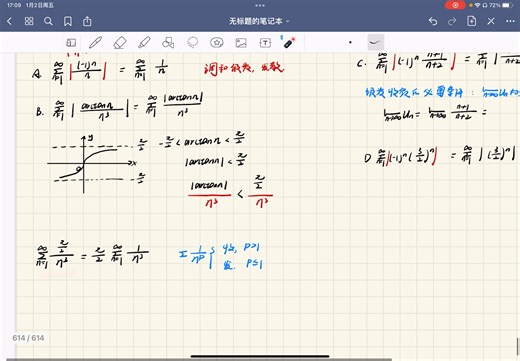 17:09 1月2日周五
72%
无标题的笔记本
A. ∞Σn=1 |(-1)ⁿ/n| = ∞Σn=1 1/n 调和级数, 发散.
B. ∞Σn=1 |arctan n/n³| = ∞Σn=1 |arctan n|/n³
y π/2
x
0
-π/2
-π/2 < arctan n < π/2
|arctan n| < π/2
|arctan n|/n³ < π/2/n³
∞Σn=1 π/2/n³ = π/2 ∞Σn=1 1/n³
Σ 1/nᵖ { 收, P>1
发. P≤1
C. ∞Σn=1 |(-1)ⁿ n+1/n+2| =
级数收敛的必要条件: lim n→∞ Un
lim n→∞ Un = lim n→∞ n+1/n+2 =
D ∞Σn=1 |(-1)ⁿ(3/2)ⁿ| = ∞Σn=1 |(3/2)ⁿ|
614 / 614